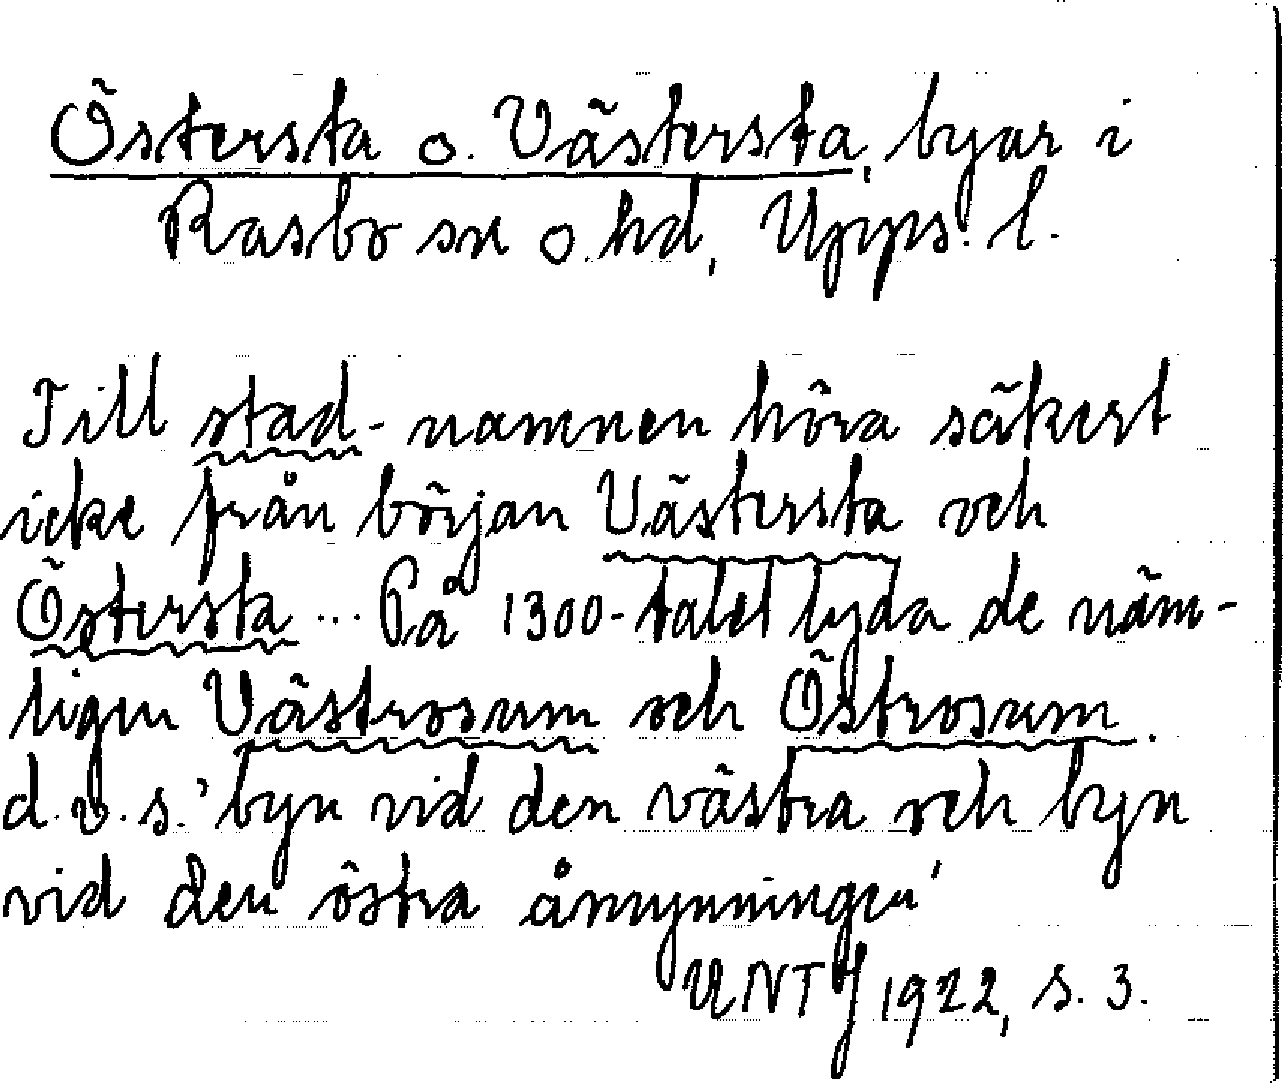 Östersta o. Västersta, byar i
Rasbo sn o. hd, Upps. l.
Till stad-namnen höra säkert
icke från början Västersta och
Östersta ... På 1300-talet lyda de näm-
ligen Västrosum och Östrosum.
d.v.s. 'byn vid den västra och byn
vid den östra åmynningen'
UNTJ 1922, s. 3.